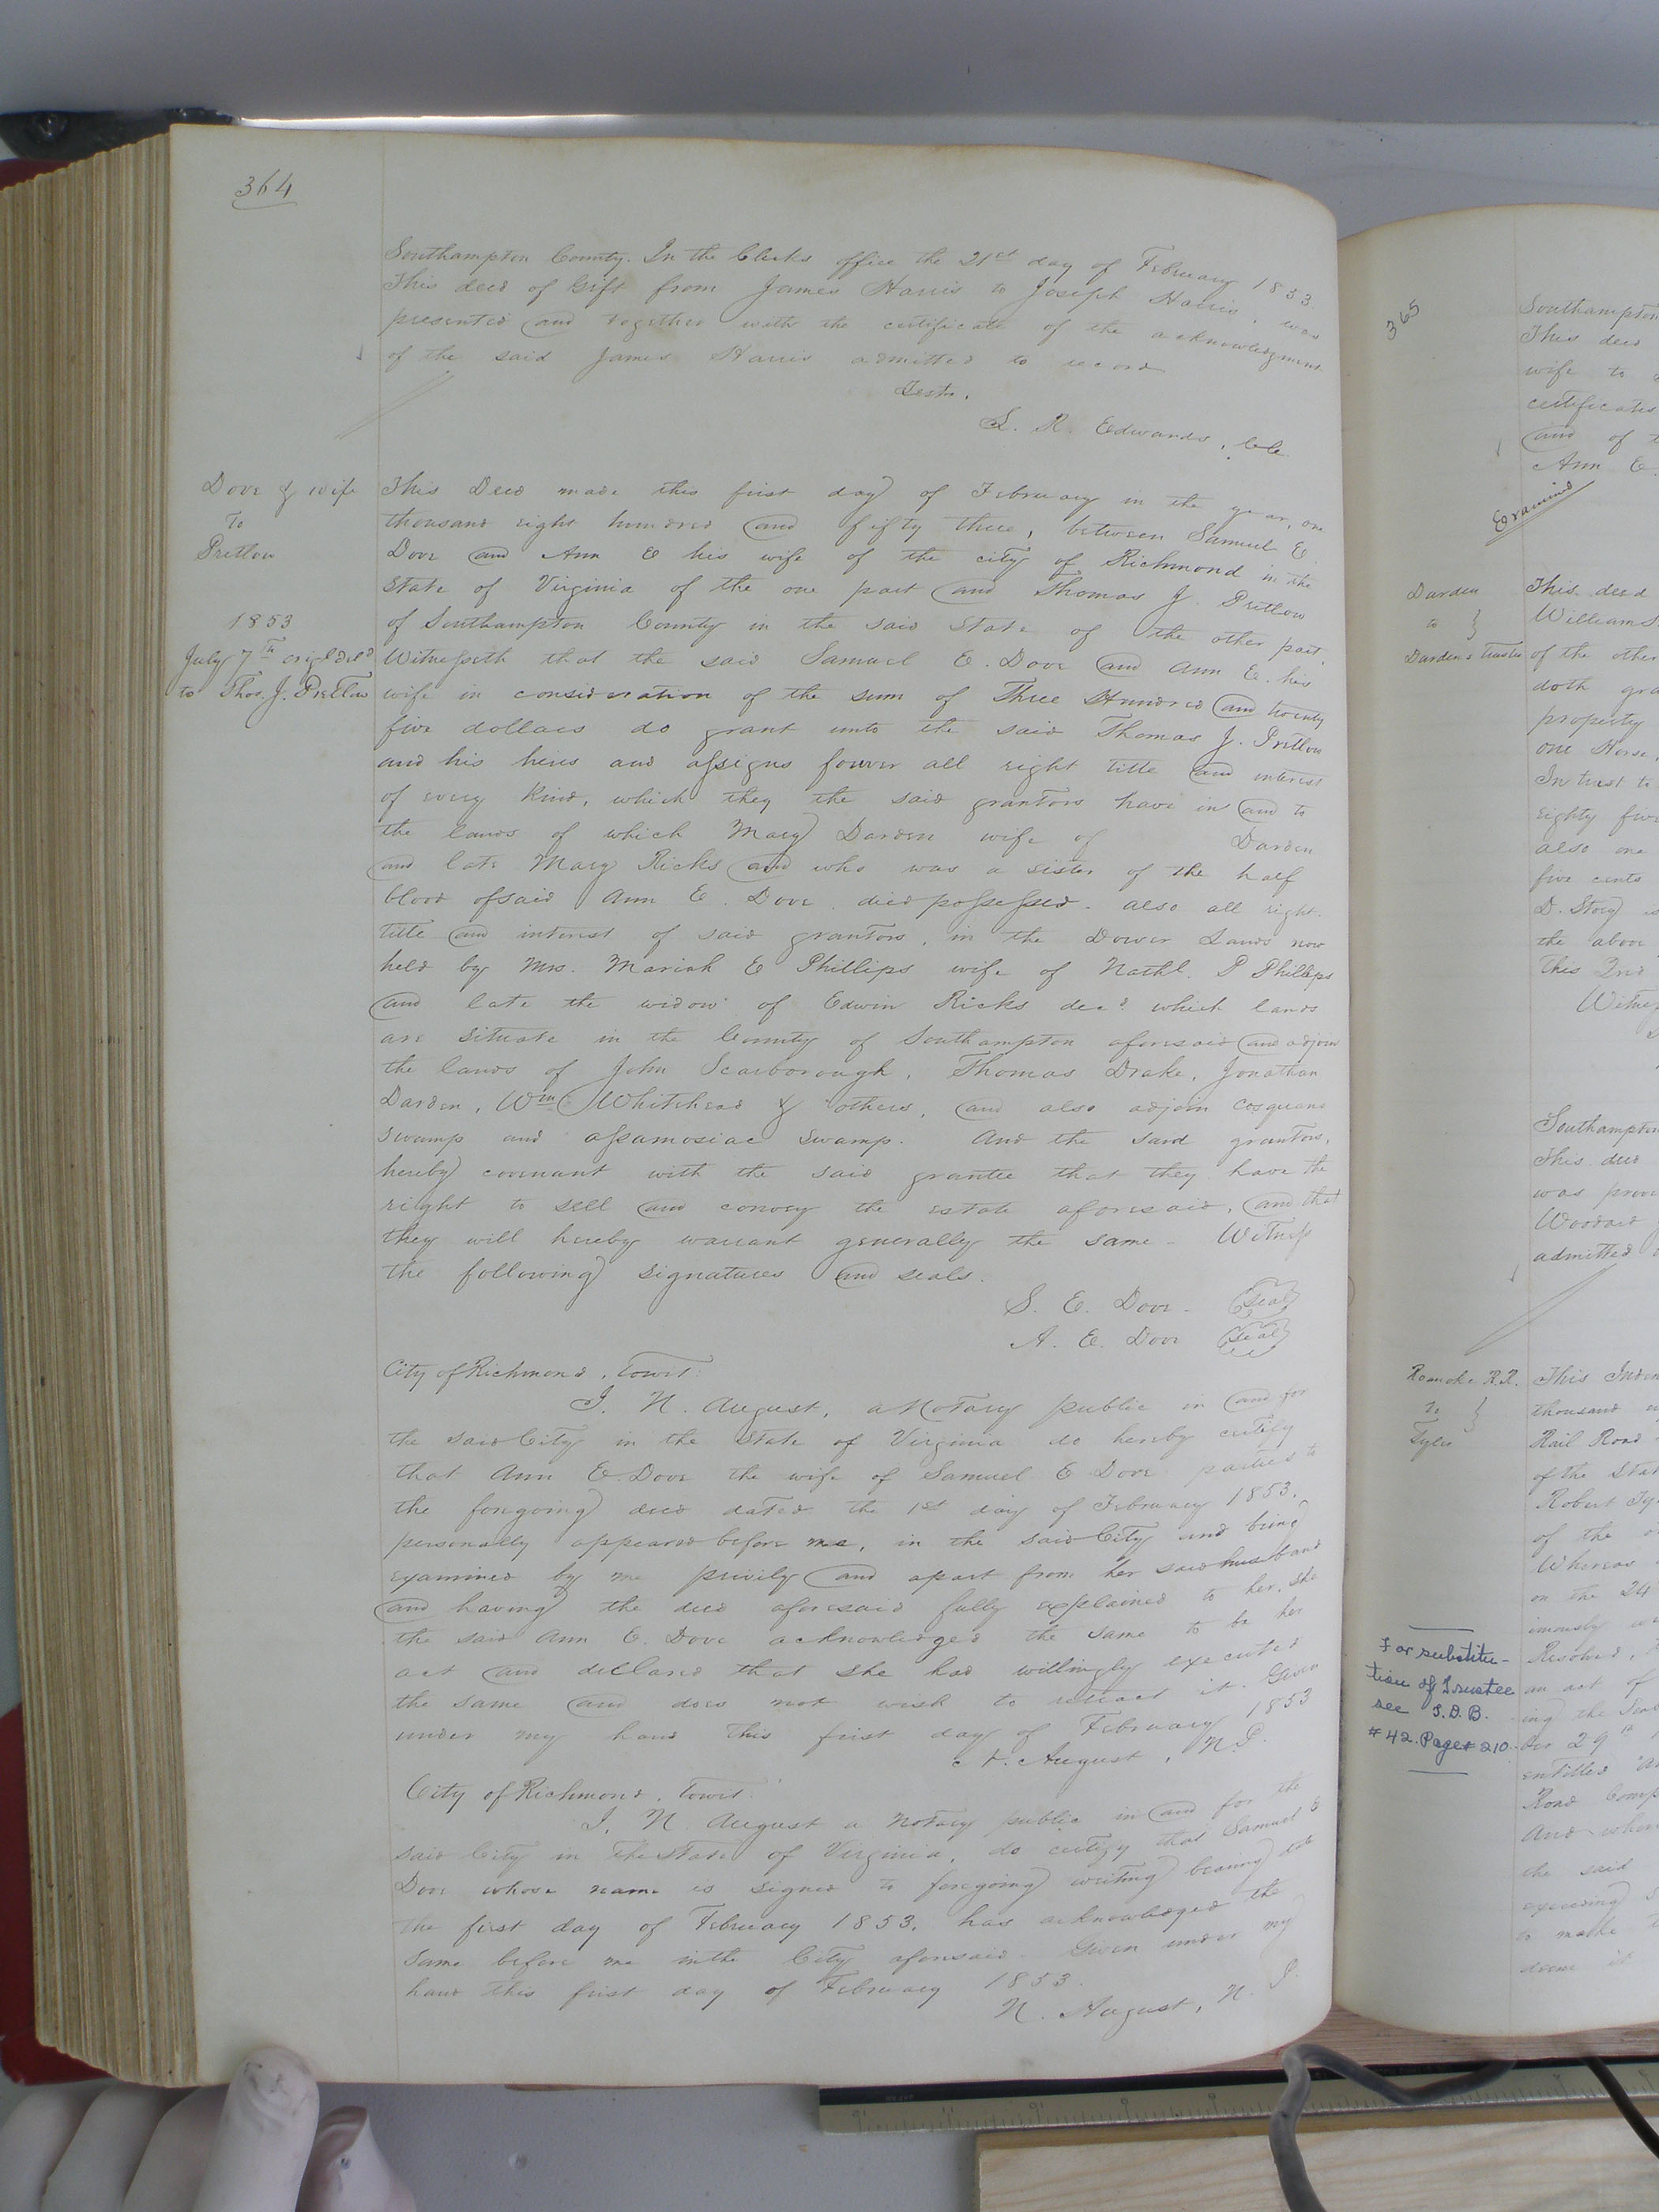 364
Southampton County. In the Clerks office the 21st day of February 1853
This deed of Gift from James Harris to Joseph Harris, was
presented and together with the certificate of the acknowledgment
of the said James Harris admitted to record
Teste.
L. R. Edwards, Clk.
Dove & wife
To
Pretlow
1853
July 7th origl deld
to Thos. J. Pretlow
This Deed made this first day of February in the year, one
thousand eight hundred and fifty three, between Samuel E
Dove and Ann E his wife of the city of Richmond in the
State of Virginia of the one part and Thomas J. Pretlow
of Southampton County in the said State of the other part.
Witnesseth that the said Samuel E. Dove and Ann E. his
wife in consideration of the sum of Three Hundred and twenty
five dollars do grant unto the said Thomas J. Pretlow
and his heirs and assigns forever all right title and interest
of every kind, which they the said grantors have in and to
the lands of which Mary Darden wife of Darden
and late Mary Ricks and who was a sister of the half
blood of said Ann E. Dove died possessed. also all right.
title and interest of said grantors, in the Dower Lands now
held by Mrs. Mariah E Phillips wife of Nathl. P Phillips
and late the widow of Edwin Ricks decd which lands
are situate in the County of Southampton aforesaid and adjoin
the lands of John Scarborough, Thomas Drake, Jonathan
Darden, Wm Whitehead & others, and also adjoin
swamp and assamosiac swamp. And the said grantors,
hereby covenant with the said grantee that they have the
right to sell and convey the estate aforesaid, and that
they will hereby warrant generally the same - Witness
the following signatures and seals.
S. E. Dove - Seal
A. E. Dove Seal
City of Richmond, Towit:
I. N. August, a Notary public in and for
the said City in the State of Virginia do hereby certify
that Ann E. Dove the wife of Samuel E Dove parties to
the foregoing deed dated the 1st day of February 1853.
personally appeared before me, in the said City and being
examined by me privily and apart from her said husband
and having the deed aforesaid fully explained to her, she
the said Ann E. Dove acknowledged the same to be her
act and declared that she had willingly executed
the same and does not wish to retract it. Given
under my hand this first day of February 1853
N. August, N.P.
City of Richmond, Towit:
I, N. August a Notary public in and for the
said City in the State of Virginia, do certify that Samuel E
Dove whose name is signed to foregoing writing bearing date
the first day of February 1853, has acknowledged the
same before me in the City aforesaid. Given under my
hand this first day of February 1853.
N. August, N. P.
365
Southampton
This deed
wife to
certificates
and of
Ann E.
Examined
Darden
to
Darden's trustee
This deed
Williams
of the other
doth gra
property
one Horse,
In trust to
eighty five
also one
five cents
D. Story
the above
this 2nd
Witne
Southampton
This deed
was prov
Woodard
admitted
Roanoke R.R.
To
Tyler
This Inden
thousand
Rail Road
of the Stat
Robert Ty
of the
Whereas
on the 24
imously
Resolved,
an act of
ing the
29th
entitled
Road Comp
And when
the said
to make
deem it
For substitu-
tion of Trustee
see S.D.B.
#42. Page# 210.